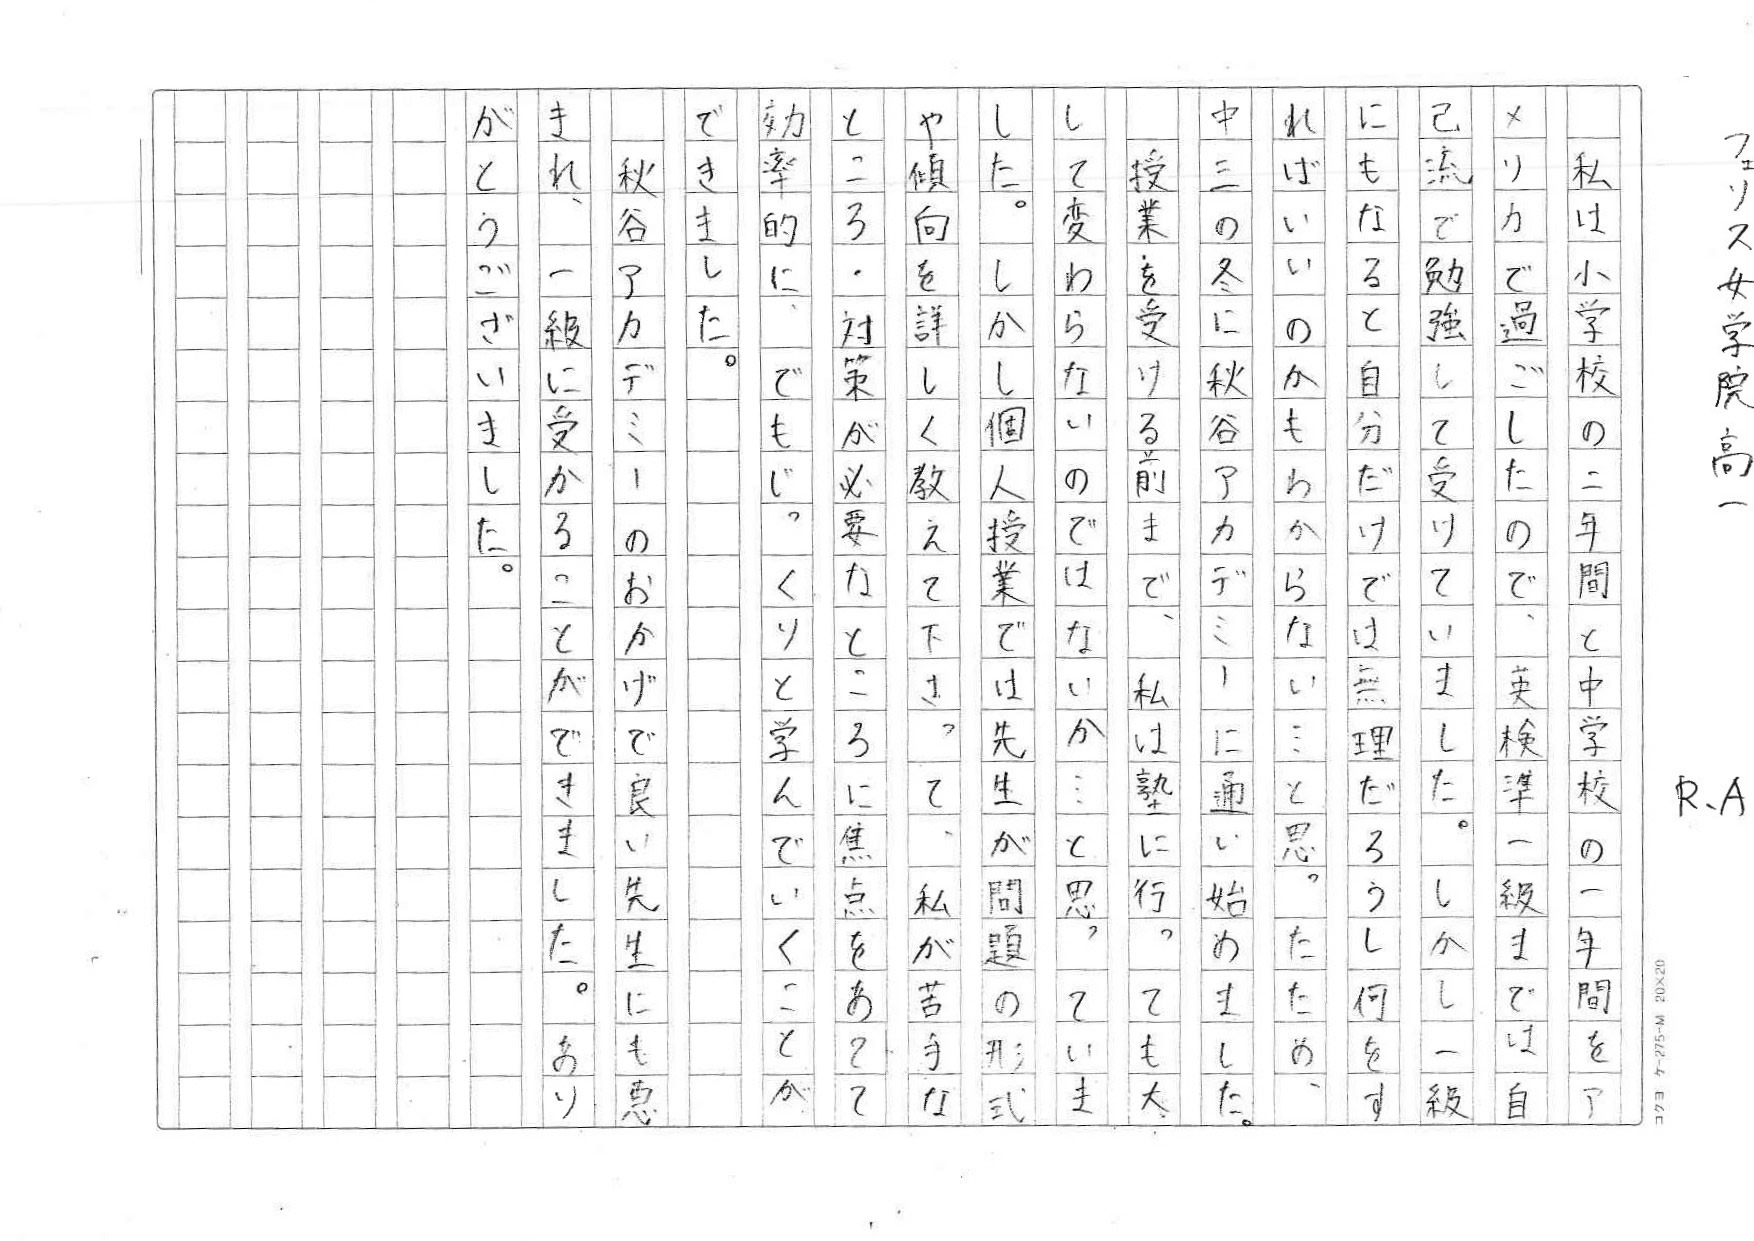 フェリス女学院高一
R.A
　私は小学校の二年間と中学校の一年間をア
メリカで過ごしたので、英検準一級までは自
己流で勉強して受けていました。しかし一級
にもなると自分だけでは無理だろうし何をす
ればいいのかもわからない…と思ったため、
中三の冬に秋谷アカデミーに通い始めました。
　授業を受ける前まで、私は塾に行っても大
して変わらないのではないか…と思っていま
した。しかし個人授業では先生が問題の形式
や傾向を詳しく教えて下さって、私が苦手な
ところ・対策が必要なところに焦点をあてて
効率的に、でもじっくりと学んでいくことが
できました。
　秋谷アカデミーのおかげで良い先生にも恵
まれ、一級に受かることができました。あり
がとうございました。
コクヨ ケ-275-M 20×20